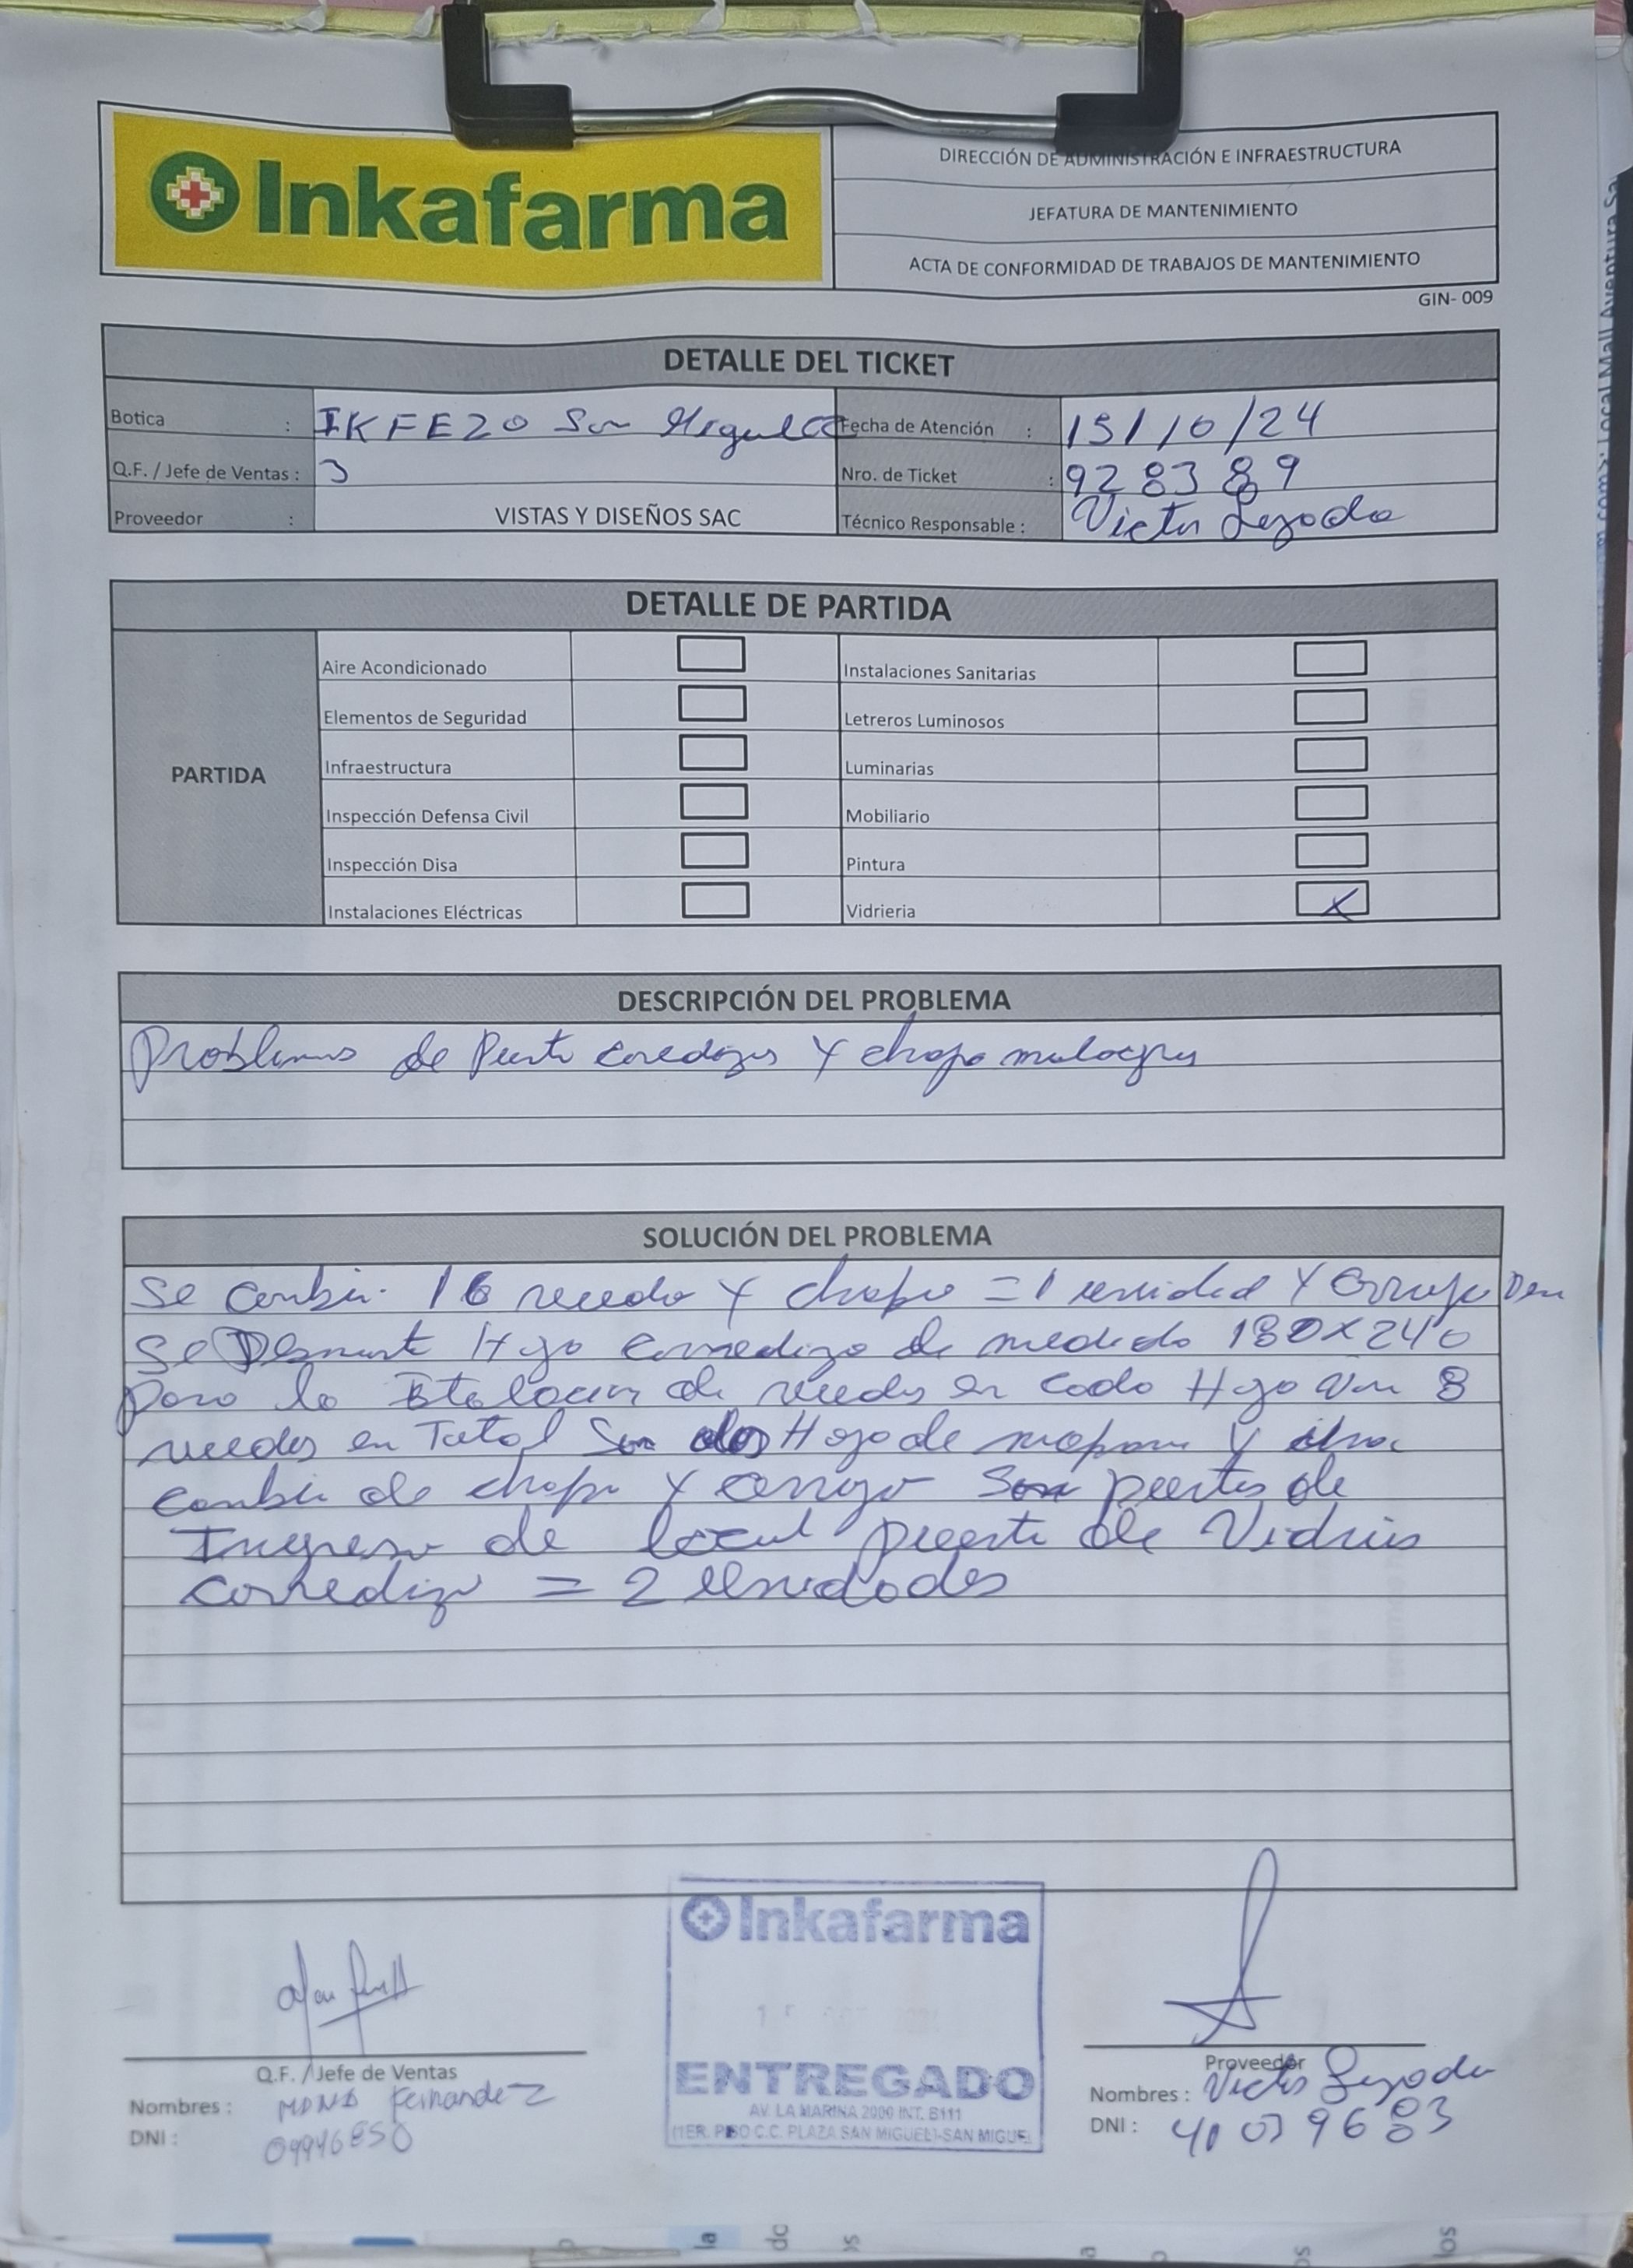 Inkafarma
DIRECCIÓN DE ADMINISTRACIÓN E INFRAESTRUCTURA
JEFATURA DE MANTENIMIENTO
ACTA DE CONFORMIDAD DE TRABAJOS DE MANTENIMIENTO
GIN- 009
DETALLE DEL TICKET
Botica : IKFE20 San Miguel Fecha de Atención : 15/10/24
Q.F. / Jefe de Ventas : 3 Nro. de Ticket : 928389
Proveedor : VISTAS Y DISEÑOS SAC Técnico Responsable : Victor
DETALLE DE PARTIDA
PARTIDA
Aire Acondicionado Instalaciones Sanitarias
Elementos de Seguridad Letreros Luminosos
Infraestructura Luminarias
Inspección Defensa Civil Mobiliario
Inspección Disa Pintura
Instalaciones Eléctricas Vidrieria X
DESCRIPCIÓN DEL PROBLEMA
Problemas de Puerta Y chapa
SOLUCIÓN DEL PROBLEMA
Se cambio 16 rueda Y chapa = 1 unidad Y
Se Desmonta Hoja corrediza de medida 180X240
para la de ruedas en cada Hoja van 8
ruedas en Total Son dos Hoja de Y
cambio de chapa Y Son puertas de
Ingreso de local puerta de Vidrio
corrediza = 2 Unidades
Inkafarma
ENTREGADO
AV. LA MARINA 2000 INT. B111
1ER. PISO C.C. PLAZA SAN MIGUEL-SAN MIGUEL
Q.F. / Jefe de Ventas
Nombres : Fernandez
DNI :
Proveedor
Nombres : Victor
DNI :